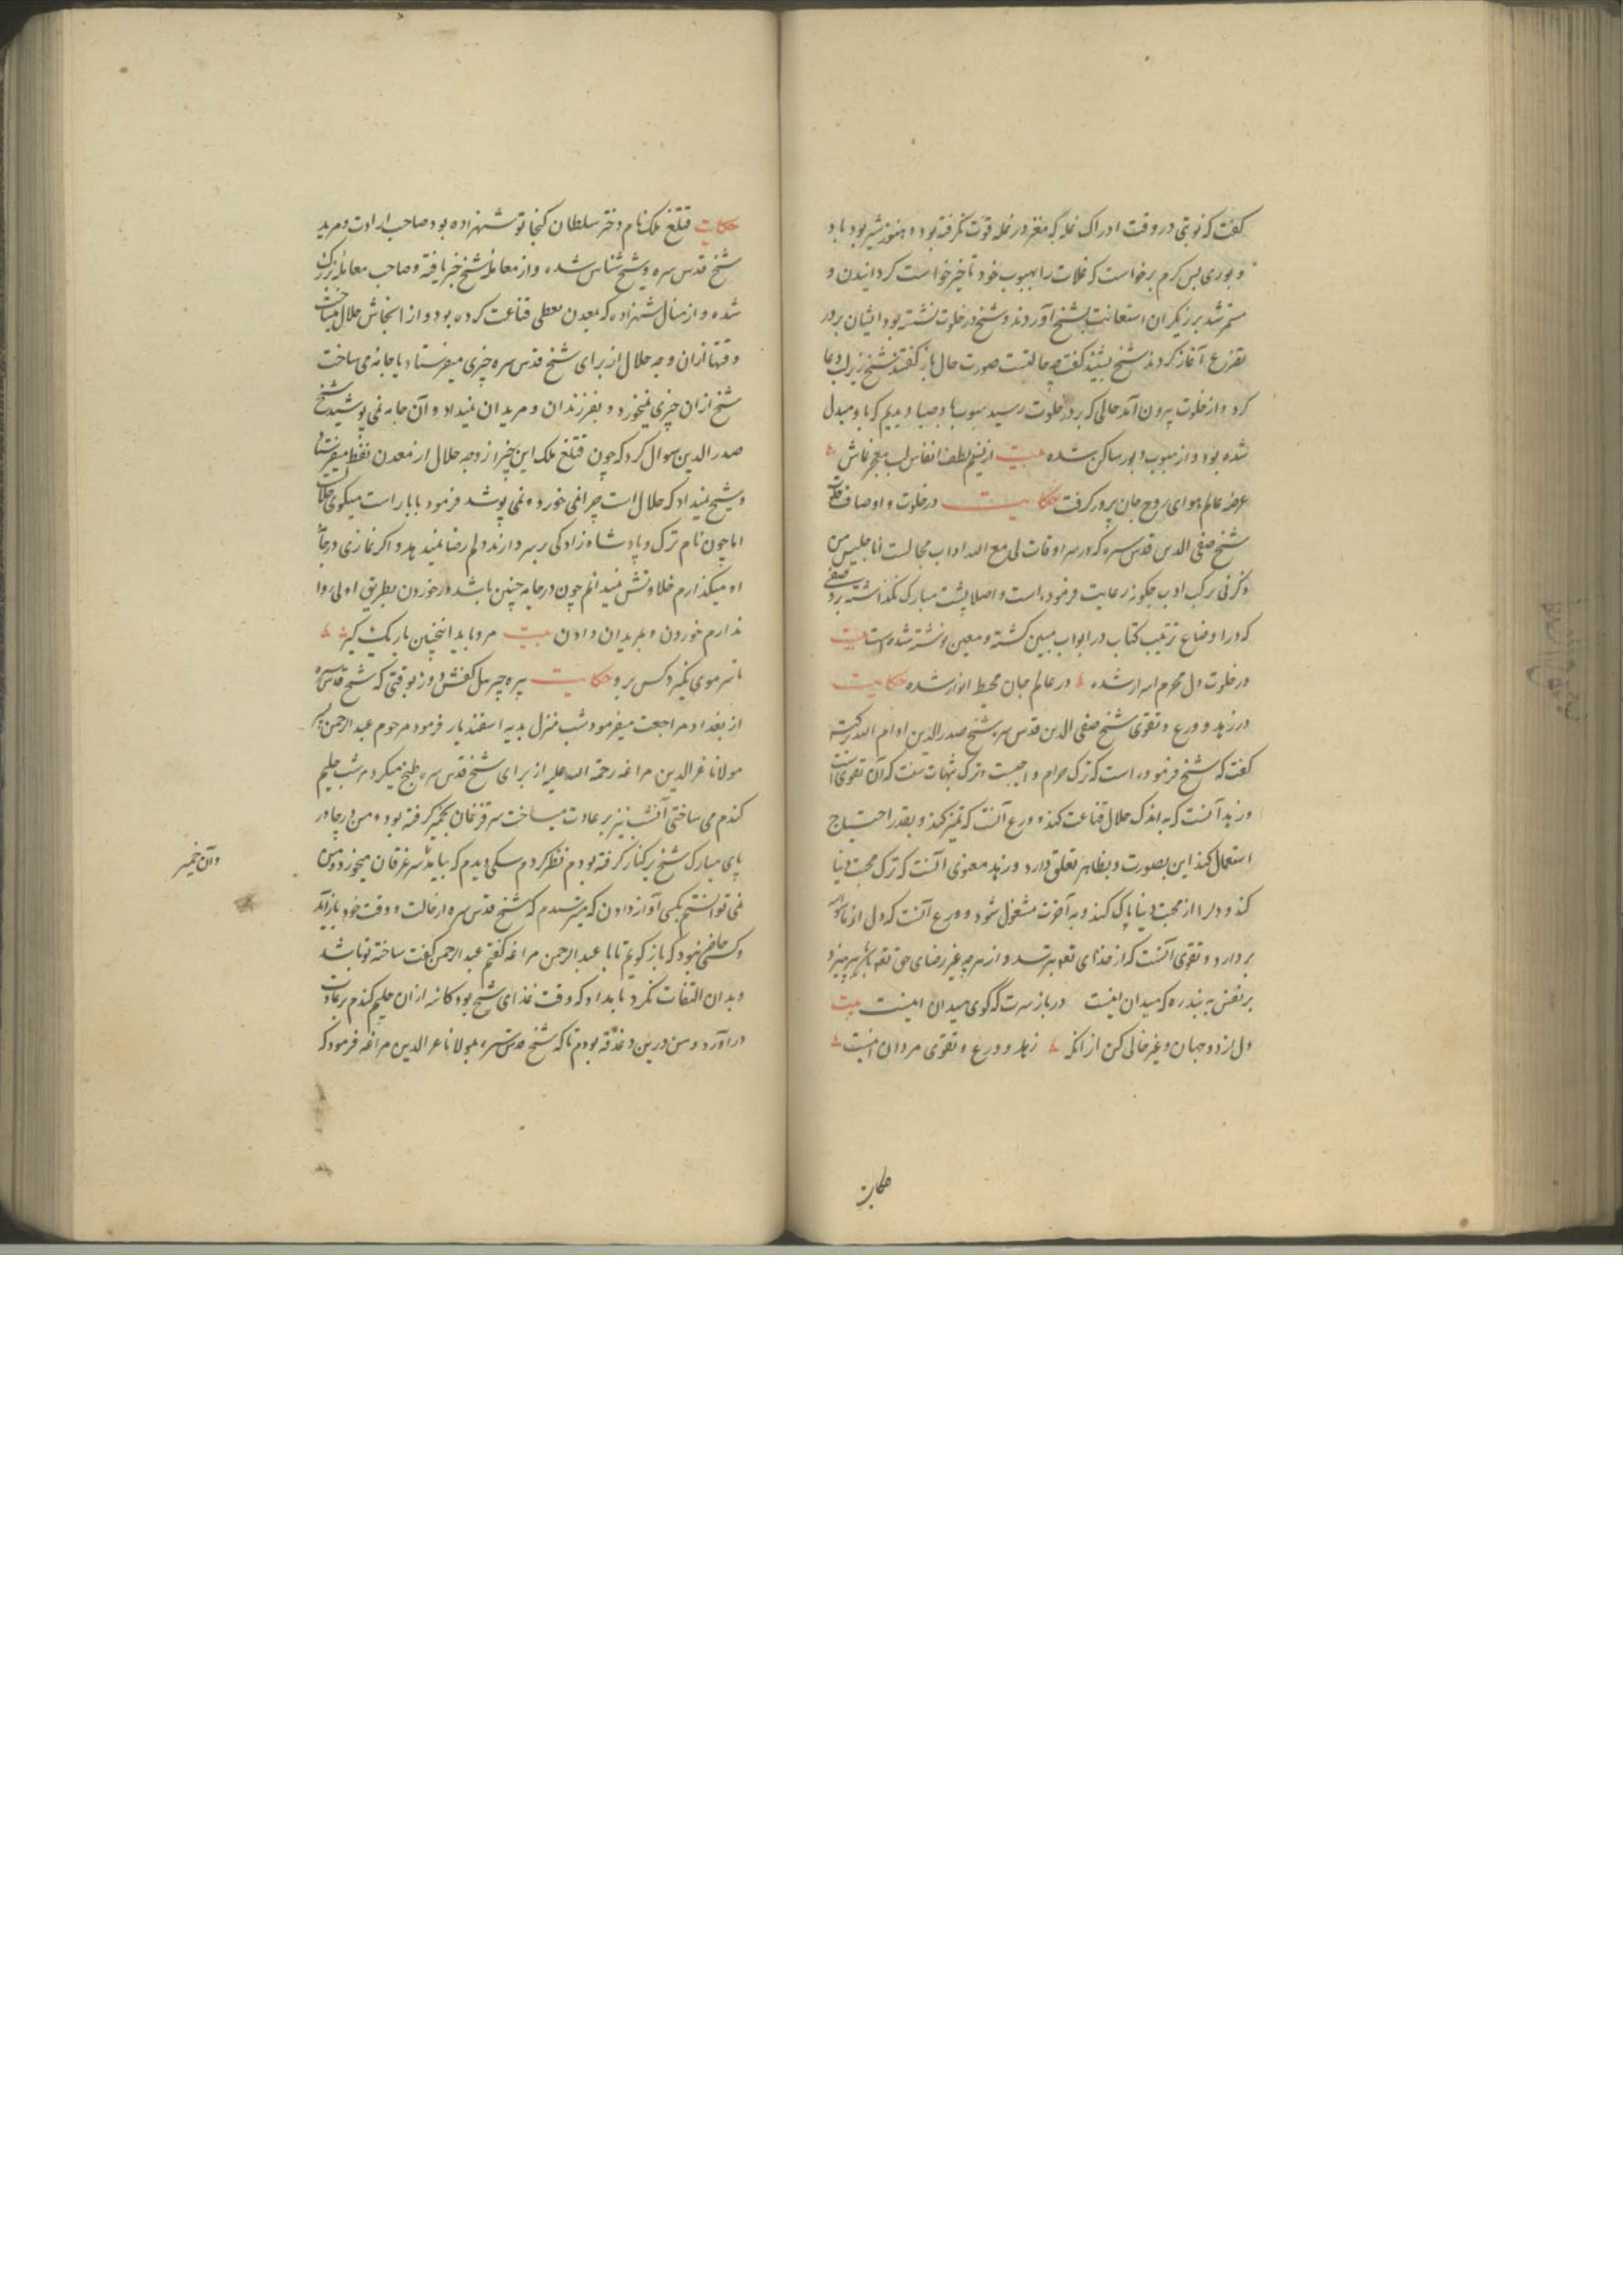 گفت که نوبتی در وقت ادراک غله که مغز در غله قوت نگرفته بود و هنوز شیر بود باد
و بوری بس گرم برخواست که غلات را بهبوب خود تاخیر خواست گردانیدن و
متمر شد برزیگران استعانت بشیخ آوردند و شیخ در خلوت نشسته بود ایشان بر در
تضرع آغاز کردند شیخ بشنید گفت چه حالتست صورت حال باز گفتند شیخ زیر لب دعا
کرد و از خلوت بیرون آمد حالی که بر در خلوت رسید بهبوب باد صبا دیدیم که باد مبدل
شده بود و از هبوب دبور ساکن شده بیت از نسیم لطف انفاس لب معجز نماش
عرصه عالم هوای روح جان پرور گرفت حکایت در خلوت و اوصاف خلوت
شیخ صفی الدین قدس سره که در سه اوقات لی مع الله اداب مجالست انا جلیس من
ذکرنی بر کب ادب چگونه رعایت فرموده است و اصلا پشت مبارک نگذاشته بر
که در اوضاع ترتیب کتاب در ابواب مبین گشته و معین نوشته شده است بیت
در خلوت دل محرم اسرار شده در عالم جان محیط انوار شده حکایت
در زهد و ورع و تقوی شیخ صفی الدین قدس سره شیخ صدرالدین ادام الله برکته
گفت که شیخ فرموده است که ترک حرام واجبست و ترک شبهات سنت که آن تقوی است
و زهد آنست که به اندک حلال قناعت کند و ورع آنست که تمیز کند و بقدر احتیاج
استعمال کند این بصورت و بظاهر تعلق دارد و زهد معنوی آنست که ترک محبت دنیا
کند و دل را از محبت دنیا پاک کند و به آخرت مشغول شود و ورع آنست که دل از ما سوی الله
بردارد و تقوی آنست که از خدای تعه بترسد و از هرچه غیر رضای حق تعه باشد بپرهیزد
بر نفس به بند ره که میدان اینست در باز سرت که گوی میدان اینست بیت
دل از دو جهان و غیر خالی کن از انک زهد و ورع و تقوی مردان اینست
حکایت
حکایت قتلغ ملک نام دختر سلطان کیخاتو شهزاده بود صاحب ارادت و مرید
شیخ قدس سره و شیخ شناس شده و از معامله شیخ خبر یافته و صاحب معامله بزرگ
شده و از منال شهزاده که بمعدن نفطی قناعت کرده بود و از انجاش حلال میساخت
وقتها ازان وجه حلال از برای شیخ قدس سره چیزی میفرستاد یا جامه می ساخت
شیخ ازان چیزی نمیخورد و بفرزندان و مریدان نمیداد و آن جامه نمی پوشید شیخ
صدر الدین سوال کرد که چون قتلغ ملک این چیز از وجه حلال از معدن نفط میفرستد
و شیخ نمیداد که حلال است چرا نمی خورد و نمی پوشد فرمود بابا راست میگوی حلال است
اما چون نام ترک و پادشاه زادگی بر سر دارند دلم رضا نمیدهد و اگر نمازی در جامه
او میگذارم حلاوتش نمیدانم چون در جامه چنین باشد در خوردن بطریق اولی روا
ندارم خوردن و بمریدان دادن بیت مرد باید اینچنین باریک گیر
تا سر موی نگیرد کس برو حکایت پیره جبرئیل کفش دوز بوقتی که شیخ قدس سره
از بغداد مراجعت میفرمود شب منزل بدیه اسفندیار فرمود مرحوم عبد الرحمن
مولانا عز الدین مراغه رحمة الله علیه از برای شیخ قدس سره طبخ میکرد هر شب حلیم
گندم می ساختی آنشب نیز بر عادت میساخت سر قزغان بخمیر گرفته بود و من در چادر
پای مبارک شیخ بر کنار گرفته بودم نظر کردم سگی دیدم که بیامد سر غزقان میخورد و من
نمی توانستم بکسی آواز دادن که میترسیدم که شیخ قدس سره از حالت و وقت خود باز آید
و کسی حاضر نبود که باز گویم تا با عبد الرحمن مراغه گفتم عبد الرحمن گفت ساخته تو باشد
و بدان التفات نکرد تا بامداد که وقت غذای شیخ بود کاسه ازان حلیم گندم بر عادت
در آورد و من درین دغدغه بودم تا که شیخ قدس سره بمولانا عز الدین مراغه فرمود که
وآن خمیر